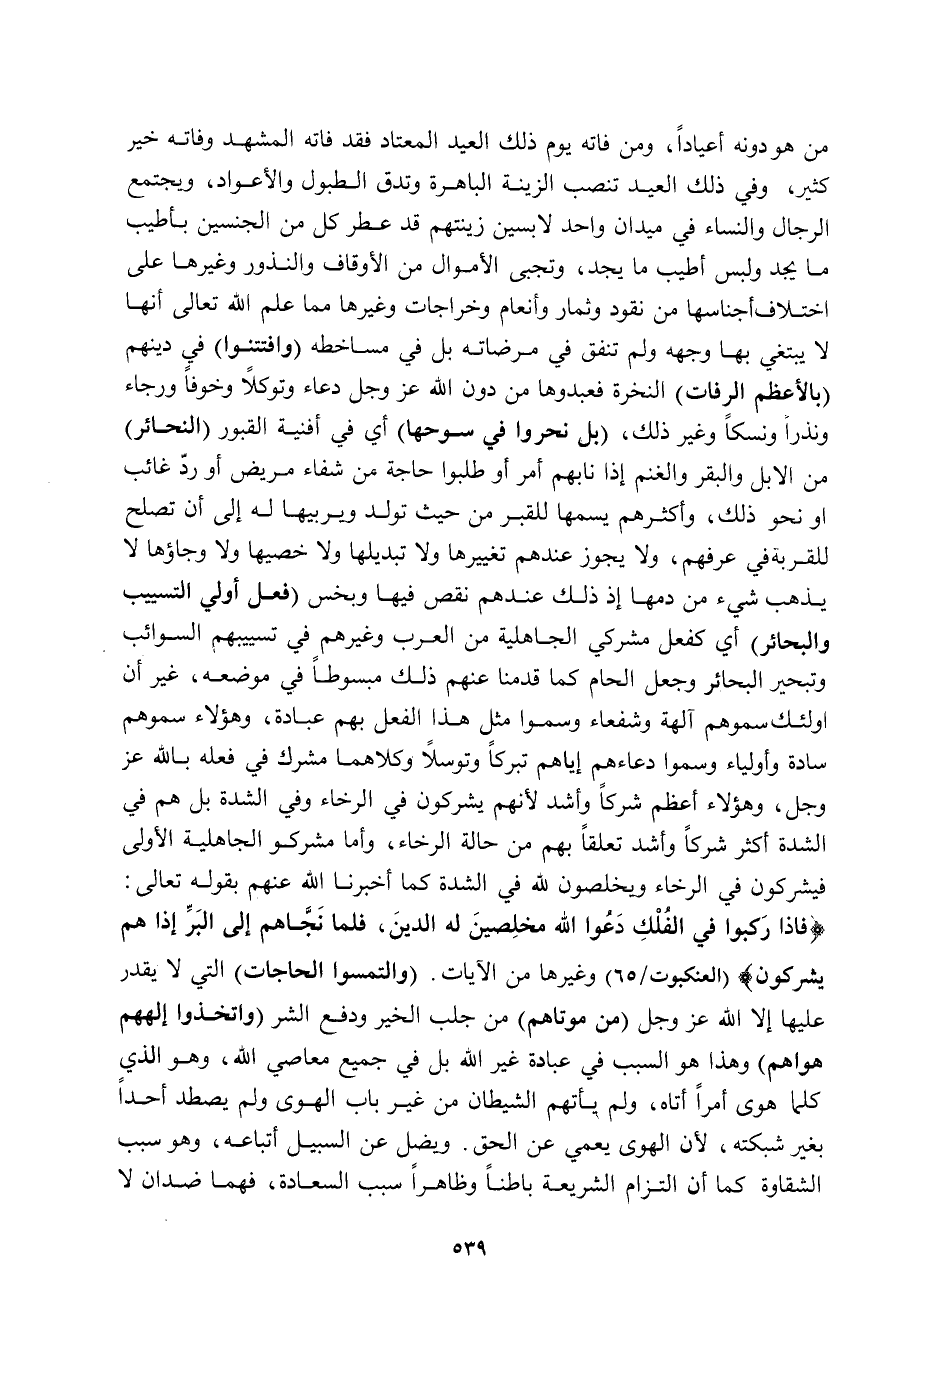 من هو دونه أعياداً، ومن فاته يوم ذلك العيد المعتاد فقد فاته المشهد وفاته خير
كثير، وفي ذلك العيد تنصب الزينة الباهرة وتدق الطبول والأعواد، ويجتمع
الرجال والنساء في ميدان واحد لابسين زينتهم قد عطر كل من الجنسين بأطيب
ما يجد ولبس أطيب ما يجد، وتجبى الأموال من الأوقاف والنذور وغيرها على
اختلاف أجناسها من نقود وثمار وأنعام وخراجات وغيرها مما علم الله تعالى أنها
لا يبتغي بها وجهه ولم تنفق في مرضاته بل في مساخطه (وافتتنوا) في دينهم
(بالأعظم الرفات) النخرة فعبدوها من دون الله عز وجل دعاء وتوكلاً وخوفاً ورجاء
ونذراً ونسكاً وغير ذلك، (بل نحروا في سوحها) أي في أفنية القبور (النحائر)
من الابل والبقر والغنم إذا نابهم أمر أو طلبوا حاجة من شفاء مريض أو ردّ غائب
او نحو ذلك، وأكثرهم يسمها للقبر من حيث تولد ويربيها له إلى أن تصلح
للقربة في عرفهم، ولا يجوز عندهم تغييرها ولا تبديلها ولا خصيها ولا وجاؤها لا
يذهب شيء من دمها إذ ذلك عندهم نقص فيها وبخس (فعل أولي التسييب
والبحائر) أي كفعل مشركي الجاهلية من العرب وغيرهم في تسييبهم السوائب
وتبحير البحائر وجعل الحام كما قدمنا عنهم ذلك مبسوطاً في موضعه، غير أن
اولئك سموهم آلهة وشفعاء وسموا مثل هذا الفعل بهم عبادة، وهؤلاء سموهم
سادة وأولياء وسموا دعاءهم إياهم تبركاً وتوسلاً وكلاهما مشرك في فعله بالله عز
وجل، وهؤلاء أعظم شركاً وأشد لأنهم يشركون في الرخاء وفي الشدة بل هم في
الشدة أكثر شركاً وأشد تعلقاً بهم من حالة الرخاء، وأما مشركو الجاهلية الأولى
فيشركون في الرخاء ويخلصون لله في الشدة كما أخبرنا الله عنهم بقوله تعالى:
﴿فاذا رَكبوا في الفُلْكِ دَعُوا الله مخلِصينَ له الدينَ، فلما نَجَّاهم إلى البَرِّ إذا هم
يشركون﴾ (العنكبوت/٦٥) وغيرها من الآيات. (والتمسوا الحاجات) التي لا يقدر
عليها إلا الله عز وجل (من موتاهم) من جلب الخير ودفع الشر (واتخذوا إلههم
هواهم) وهذا هو السبب في عبادة غير الله بل في جميع معاصي الله، وهو الذي
كلما هوى أمراً أتاه، ولم يأتهم الشيطان من غير باب الهوى ولم يصطد أحداً
بغير شبكته، لأن الهوى يعمي عن الحق. ويضل عن السبيل أتباعه، وهو سبب
الشقاوة كما أن التزام الشريعة باطناً وظاهراً سبب السعادة، فهما ضدان لا
٥٣٩